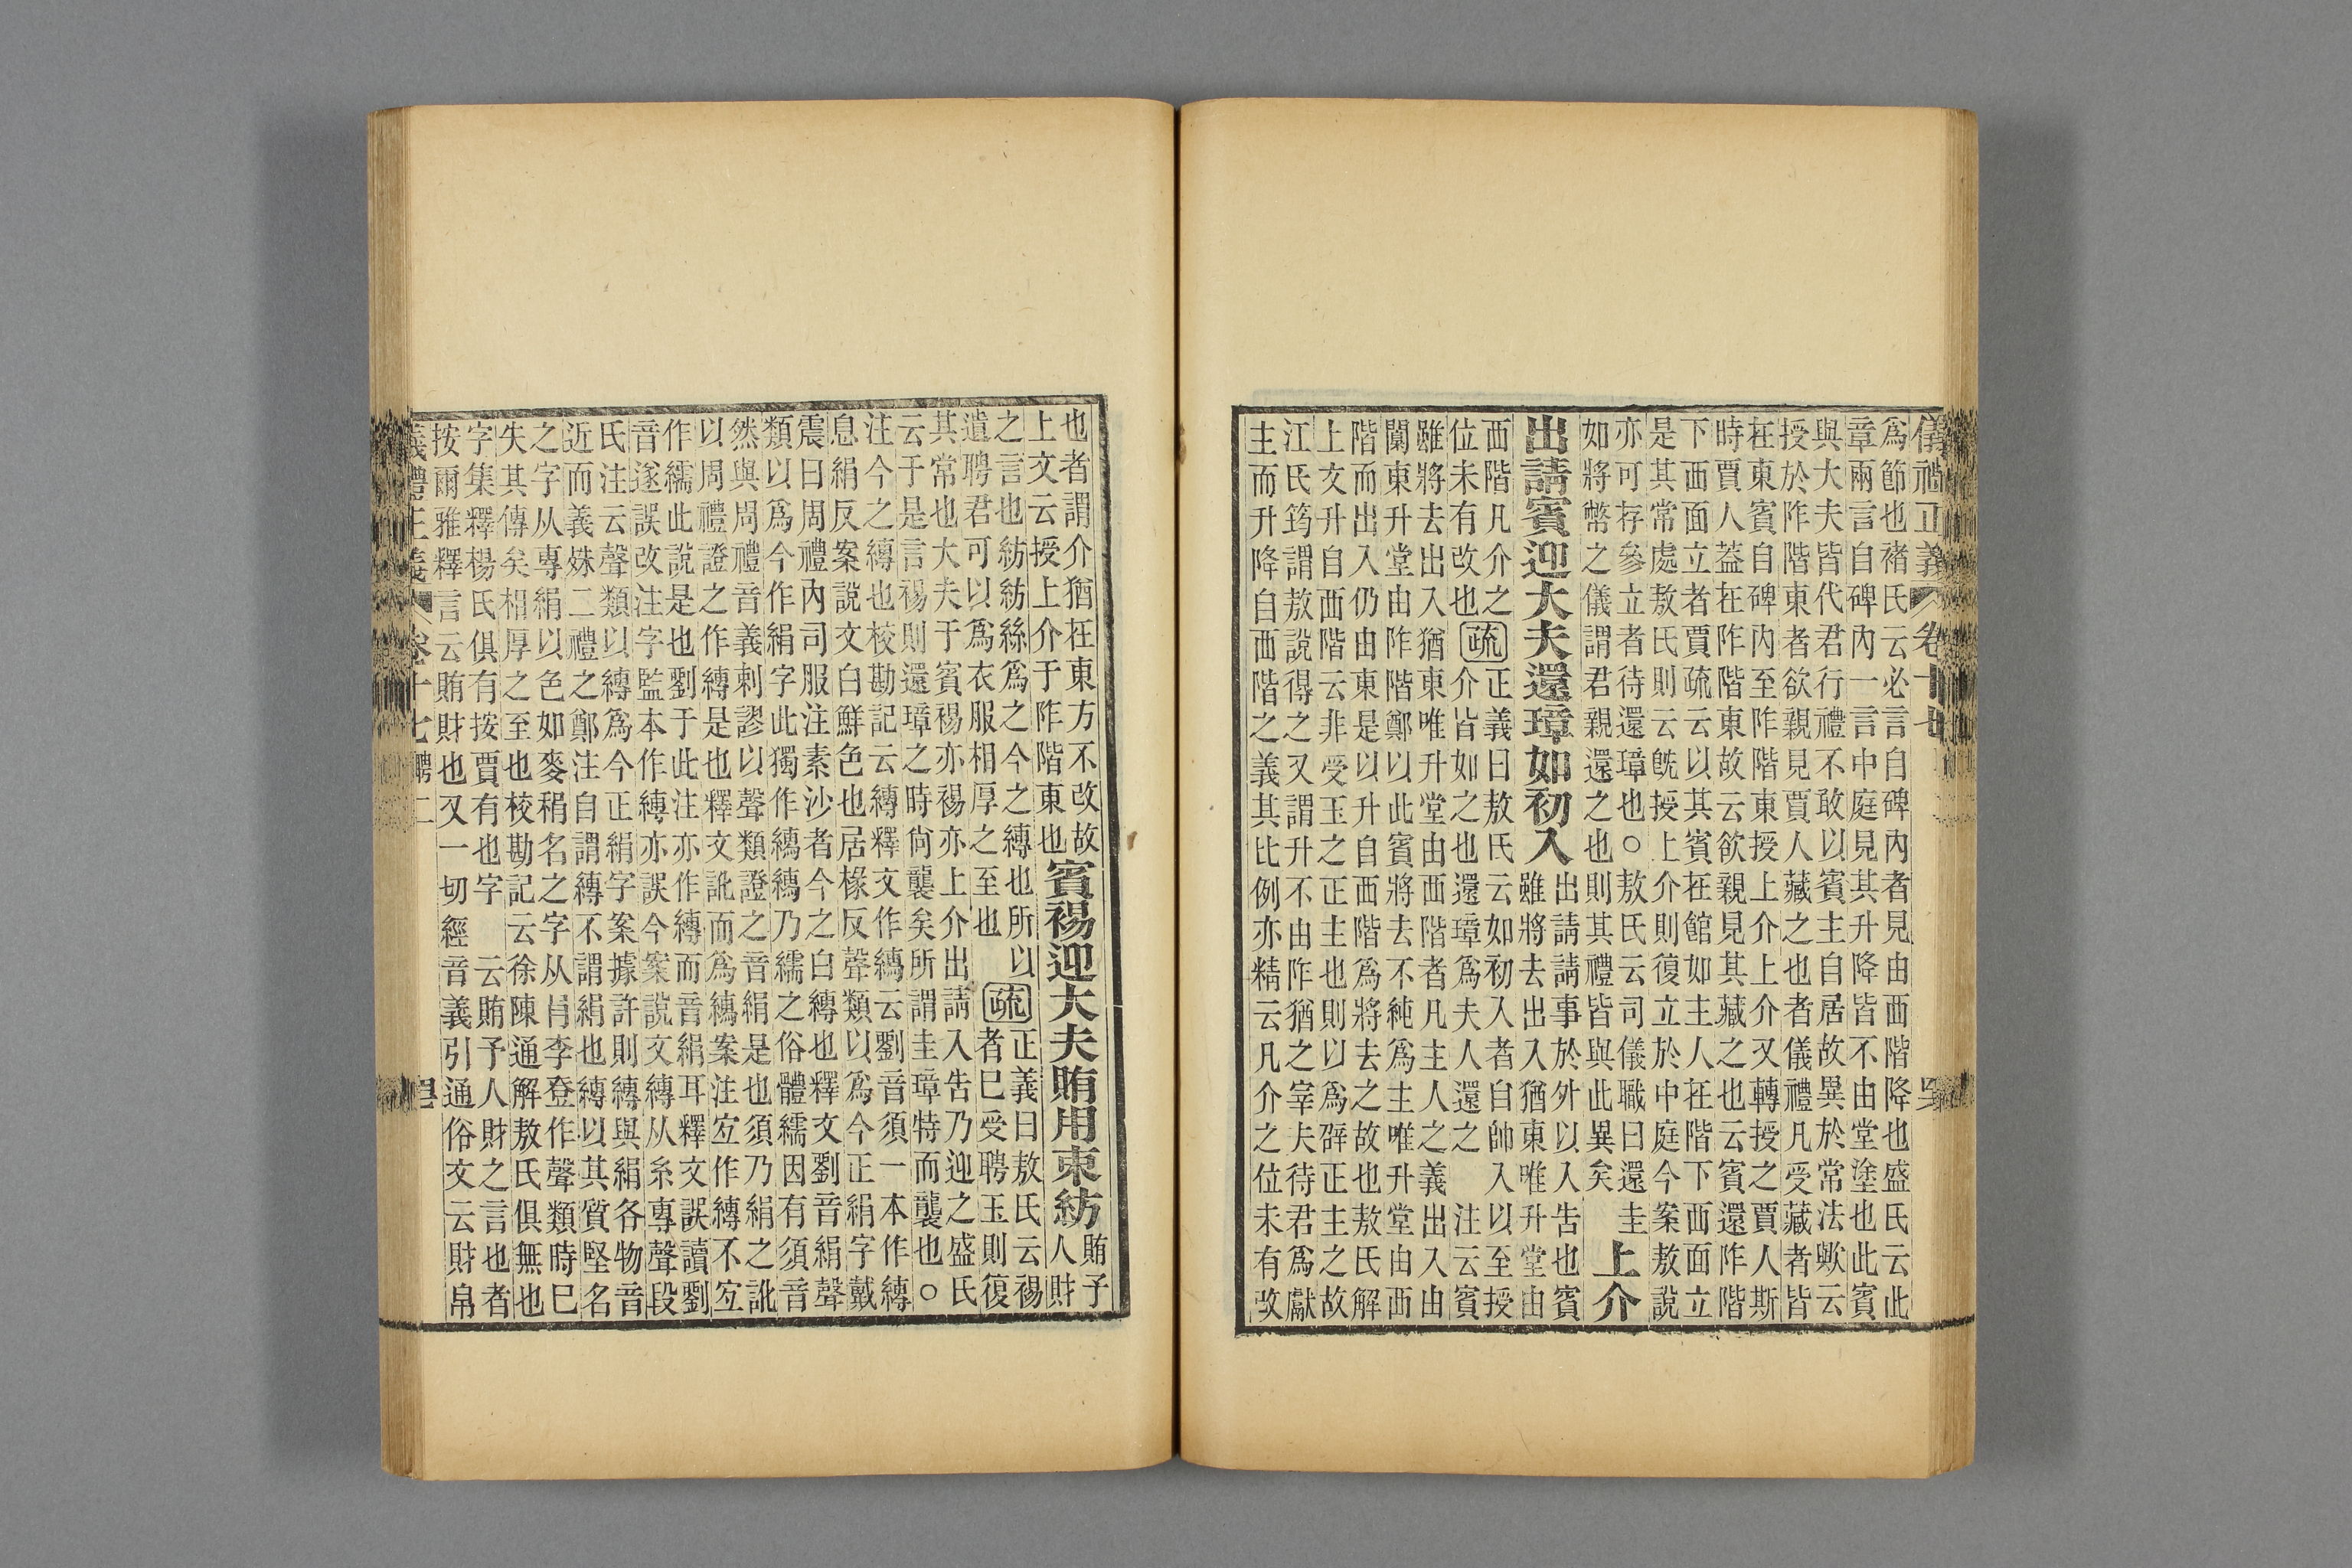 儀禮正義 卷十七
爲節也褚氏云必言自碑內者見由西階降也盛氏云此
章兩言自碑內一言中庭見其升降皆不由堂塗也此賓
與大夫皆代君行禮不敢以賓主自居故異於常法歟云
授於阼階東者欲親見賈人藏之也者儀禮凡受藏者皆
在東賓自碑內至阼階東授上介上介又轉授之賈人斯
時賈人葢在阼階東故云欲親見其藏之也云賓還阼階
下西面立者賈疏云以其賓在館如主人在階下西面立
是其常處敖氏則云旣授上介則復立於中庭今案敖說
亦可存參立者待還璋也○敖氏云司儀職曰還圭
如將幣之儀謂君親還之也則其禮皆與此異矣
上介
出請賓迎大夫還璋如初入
出請請事於外以入告也賓
雖將去出入猶東唯升堂由
西階凡介之
位未有改也
疏
正義曰敖氏云如初入者自帥入以至授
介皆如之也還璋爲夫人還之 注云賓
雖將去出入猶東唯升堂由西階者凡主人之義出入由
闑東升堂由阼階鄭以此賓將去不純爲主唯升堂由西
階而出入仍由東是以升自西階爲將去之故也敖氏解
上文升自西階云非受玉之正主也則以爲辟正主之故
江氏筠謂敖說得之又謂升不由阼猶之宰夫待君爲獻
主而升降自西階之義其比例亦精云凡介之位未有改
也者謂介猶在東方不改故
上文云授上介于阼階東也
賓裼迎大夫賄用束紡
賄予
人財
之言也紡紡絲爲之今之縳也所以
遺聘君可以爲衣服相厚之至也
疏
正義曰敖氏云裼
者巳受聘玉則復
其常也大夫于賓裼亦裼亦上介出請入告乃迎之盛氏
云于是言裼則還璋之時尙襲矣所謂圭璋特而襲也○
注今之縳也校勘記云縳釋文作繻云劉音須一本作縳
息絹反案說文白鮮色也居椽反聲類以爲今正絹字戴
震曰周禮內司服注素沙者今之白縳也釋文劉音絹聲
類以爲今作絹字此獨作繻繻乃繻之俗體繻因有須音
然與周禮音義剌謬以聲類證之音絹是也須乃絹之訛
以周禮證之作縳是也釋文訛而爲繻案注宐作縳不宐
作繻此說是也劉于此注亦作縳而音絹耳釋文誤讀劉
音遂誤改注字監本作縳亦誤今案說文縳从糸專聲段
氏注云聲類以縳爲今正絹字案據許則縳與絹各物音
近而義殊二禮之鄭注自謂縳不謂絹也縳以其質堅名
之字从專絹以色如麥䅌名之字从肙李登作聲類時巳
失其傳矣相厚之至也校勘記云徐陳通解敖氏俱無也
字集釋楊氏俱有按賈有也字 云賄予人財之言也者
按爾雅釋言云賄財也又一切經音義引通俗文云財帛
卷十七 聘二